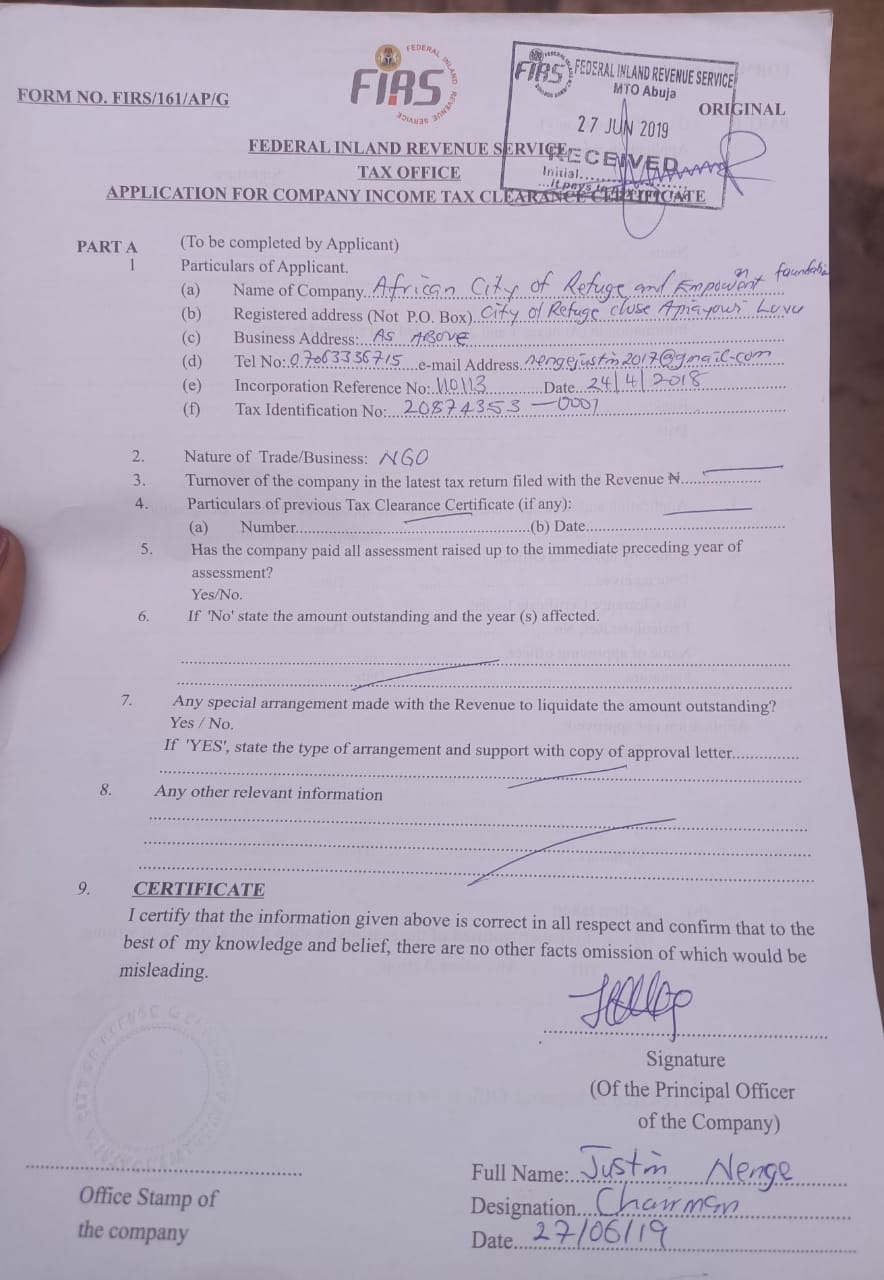 FEDERAL INLAND REVENUE SERVICE
FIRS
FORM NO. FIRS/161/AP/G
FIRS FEDERAL INLAND REVENUE SERVICE
MTO Abuja
27 JUN 2019
RECEIVED
Initial
...It pays to
ORIGINAL
FEDERAL INLAND REVENUE SERVICE
TAX OFFICE
APPLICATION FOR COMPANY INCOME TAX CLEARANCE CERTIFICATE
PART A (To be completed by Applicant)
1 Particulars of Applicant.
(a) Name of Company African City of Refuge and Empowment foundatio
(b) Registered address (Not P.O. Box) City of Refuge close Luvu
(c) Business Address: AS ABOVE
(d) Tel No: 07063336715 e-mail Address nengejustin2017@gmail.com
(e) Incorporation Reference No: 110113 Date 24/4/2018
(f) Tax Identification No: 20874353-0001
2. Nature of Trade/Business: NGO
3. Turnover of the company in the latest tax return filed with the Revenue ₦
4. Particulars of previous Tax Clearance Certificate (if any):
(a) Number (b) Date
5. Has the company paid all assessment raised up to the immediate preceding year of
assessment?
Yes/No.
6. If 'No' state the amount outstanding and the year (s) affected.
7. Any special arrangement made with the Revenue to liquidate the amount outstanding?
Yes / No.
If 'YES', state the type of arrangement and support with copy of approval letter
8. Any other relevant information
9. CERTIFICATE
I certify that the information given above is correct in all respect and confirm that to the
best of my knowledge and belief, there are no other facts omission of which would be
misleading.
Signature
(Of the Principal Officer
of the Company)
Office Stamp of
the company
Full Name: Justin Nenge
Designation Chairman
Date 27/06/19